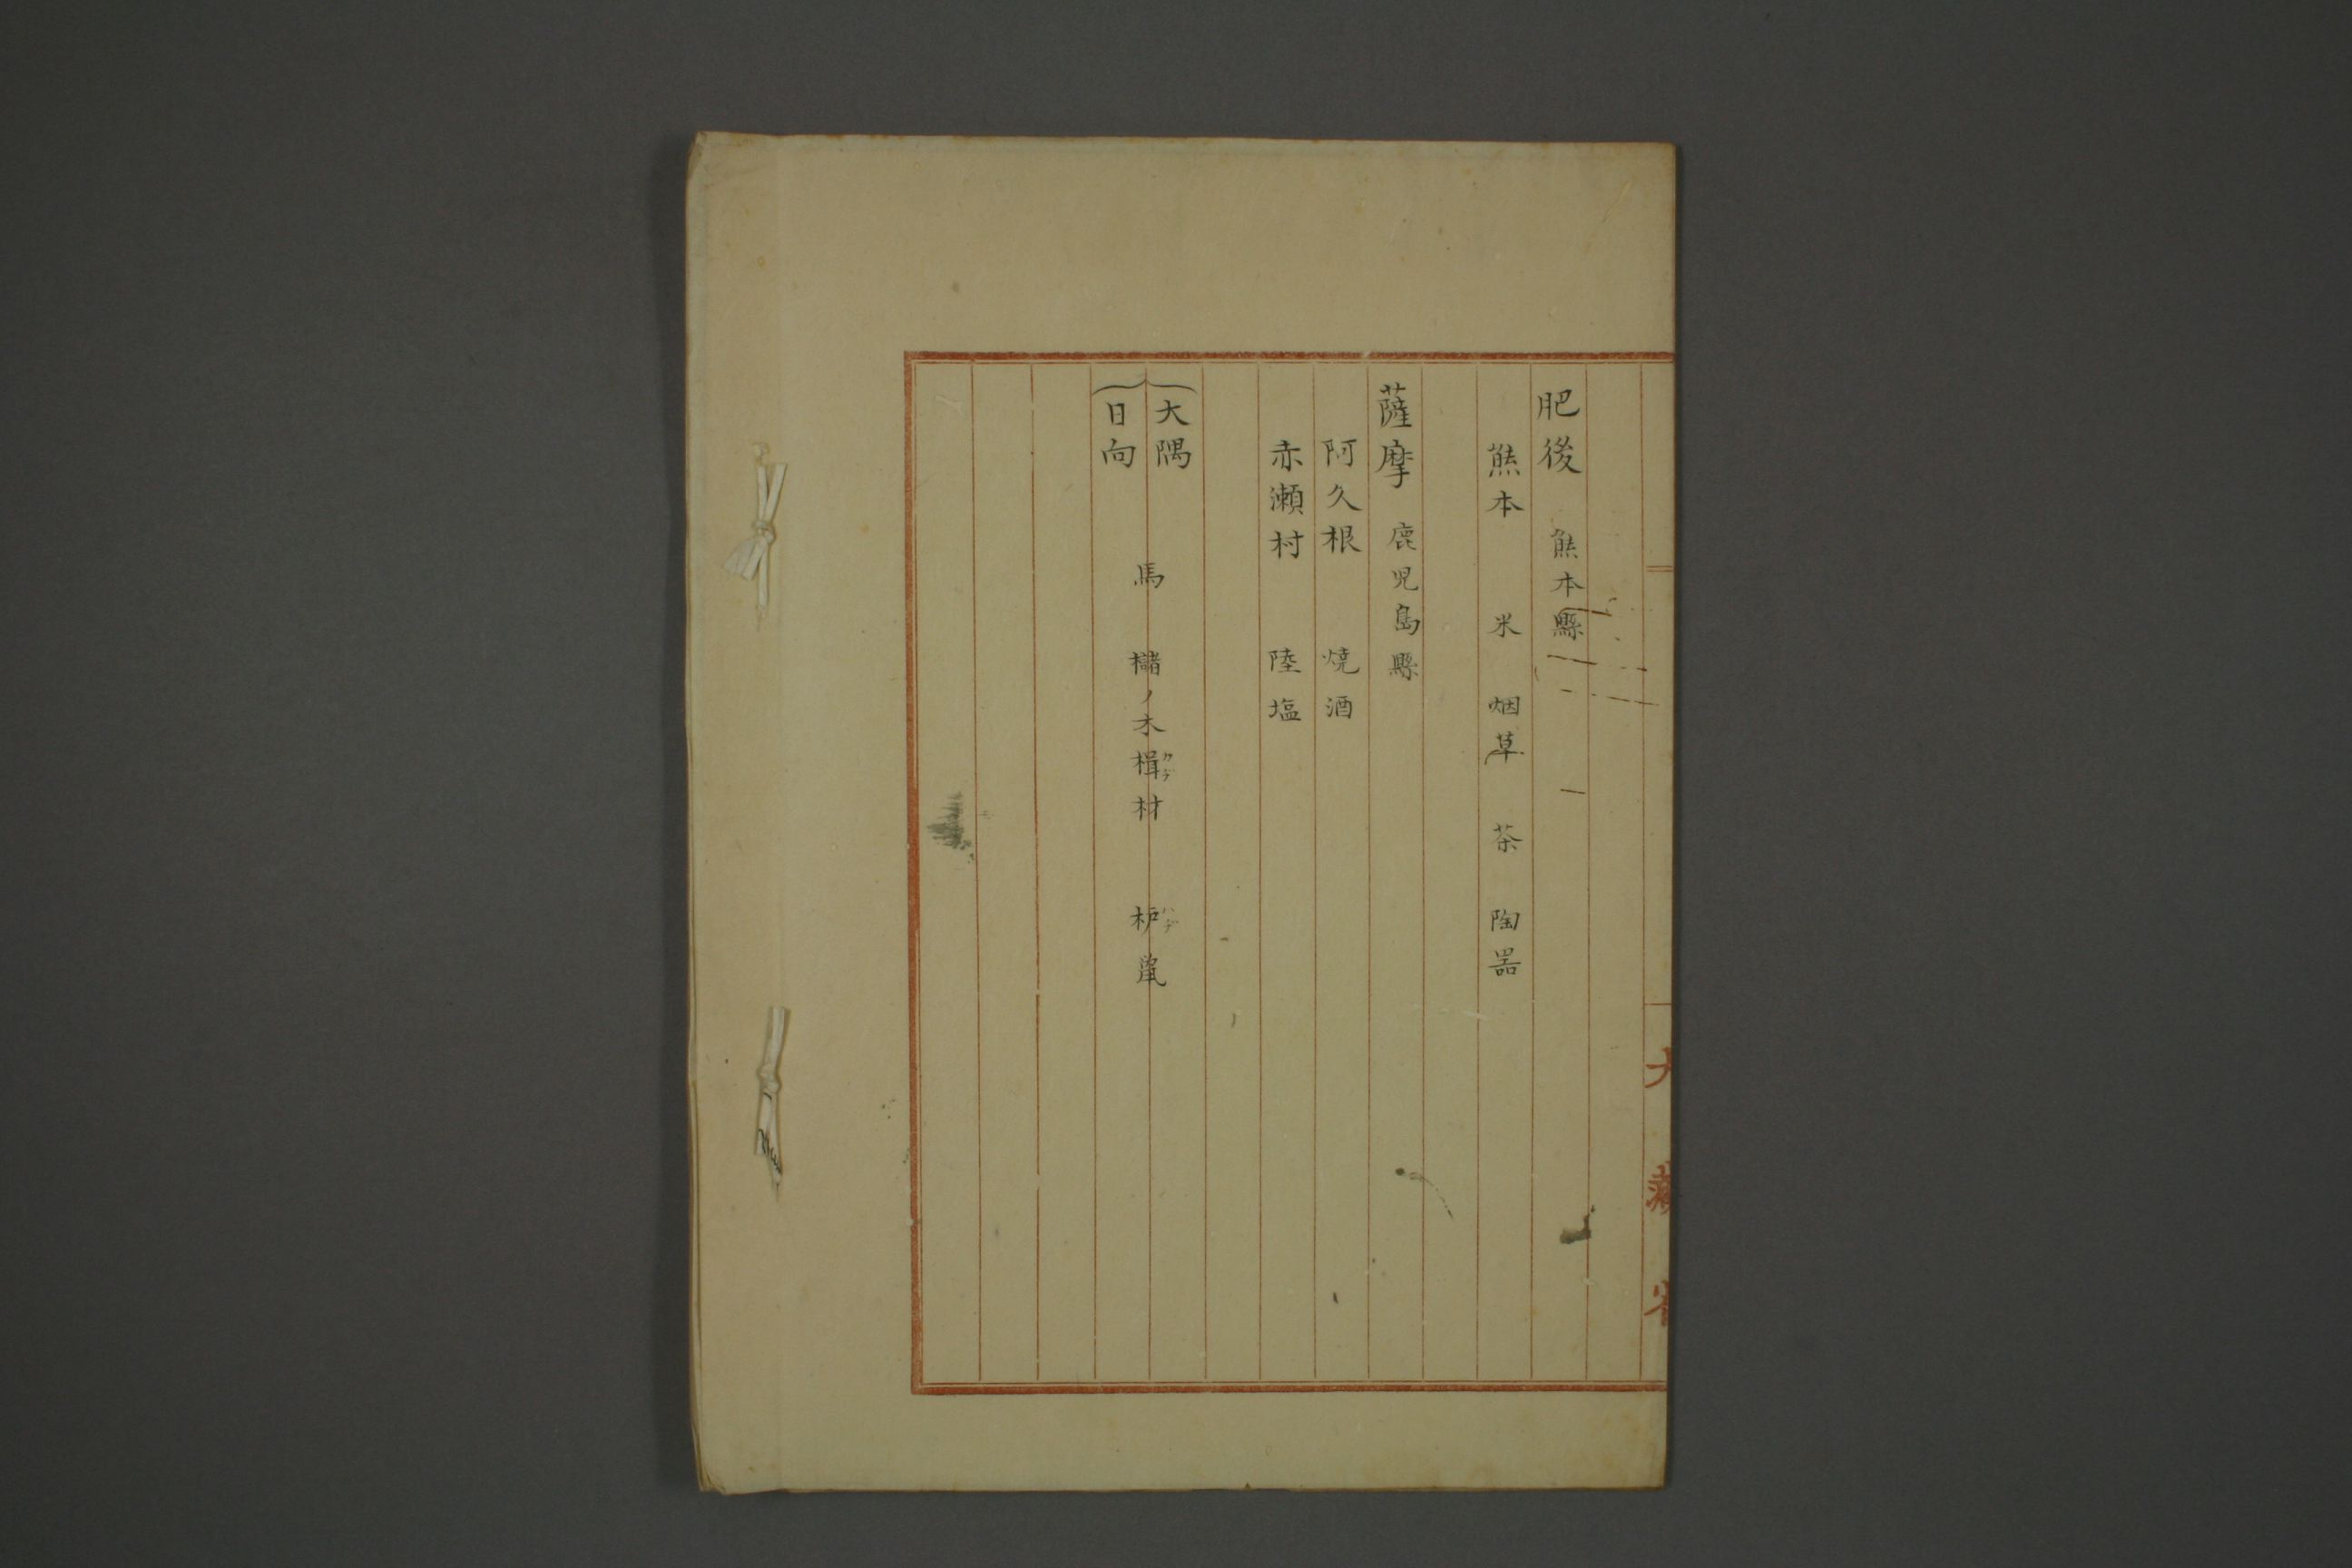 肥後 熊本縣
熊本 米 烟草 茶 陶器
薩摩 鹿児島縣
阿久根 焼酒
赤瀬村 陸塩
大隅
日向
馬 櫧ノ木楫材 枦
カヂ
ハヂ
大藏省